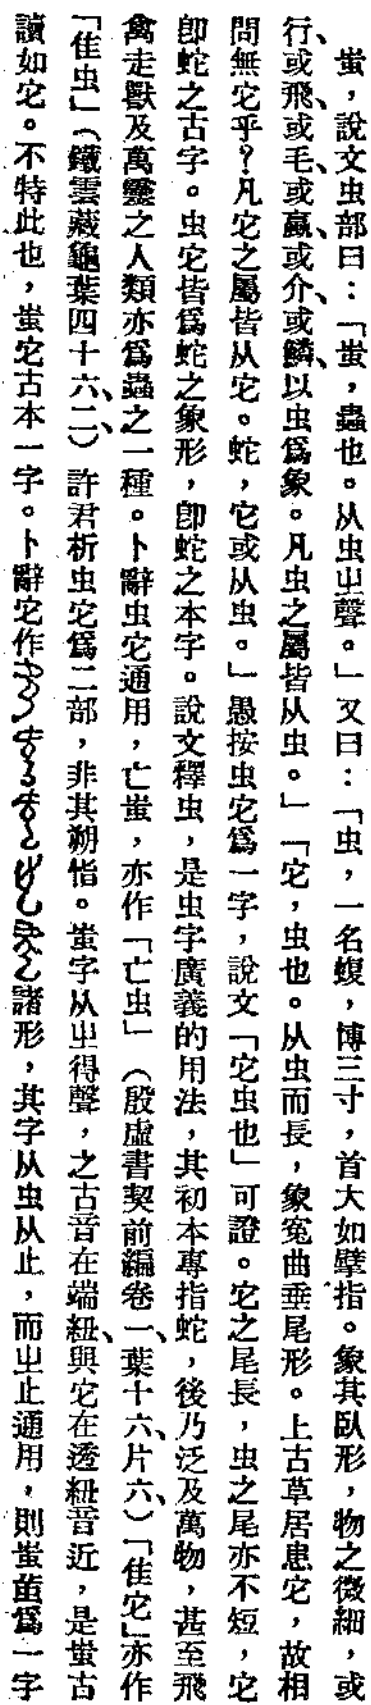 蚩，說文虫部曰：「蚩，蟲也。从虫㞢聲。」又曰：「虫，一名蝮，博三寸，首大如擘指。象其臥形，物之微細，或
行、或飛、或毛、或蠃、或介、或鱗，以虫爲象。凡虫之屬皆从虫。」「它，虫也。从虫而長，象冤曲垂尾形。上古草居患它，故相
問無它乎？凡它之屬皆从它。蛇，它或从虫。」愚按虫它爲一字，說文「它虫也」可證。它之尾長，虫之尾亦不短，它
卽蛇之古字。虫它皆爲蛇之象形，卽蛇之本字。說文釋虫，是虫字廣義的用法，其初本專指蛇，後乃泛及萬物，甚至飛
禽走獸及萬靈之人類亦爲蟲之一種。卜辭虫它通用，亡蚩，亦作「亡虫」（殷虛書契前編卷一、葉十六、片六、）「隹它」亦作
「隹虫」（鐵雲藏龜葉四十六、二、）許君析虫它爲二部，非其朔恉。蚩字从㞢得聲，之古音在端紐、與它在透紐音近，是蚩古
讀如它。不特此也，蚩它古本一字。卜辭它作諸形，其字从虫从止，而㞢止通用，則蚩䖝爲一字